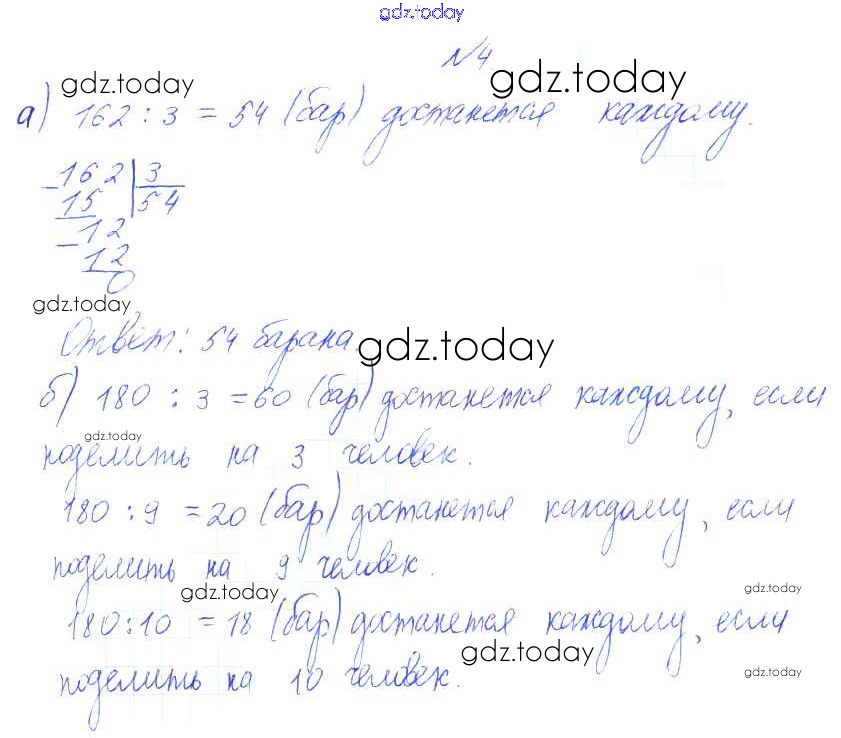 gdz.today
№4
gdz.today gdz.today
а) 162 : 3 = 54 (бар) достанется каждому.
162 | 3
15 54
12
12
0
gdz.today
Ответ: 54 барана.
gdz.today
б) 180 : 3 = 60 (бар) достанется каждому, если
gdz.today
поделить на 3 человек.
180 : 9 = 20 (бар) достанется каждому, если
поделить на 9 человек.
gdz.today gdz.today
180 : 10 = 18 (бар) достанется каждому, если
gdz.today
поделить на 10 человек.
gdz.today